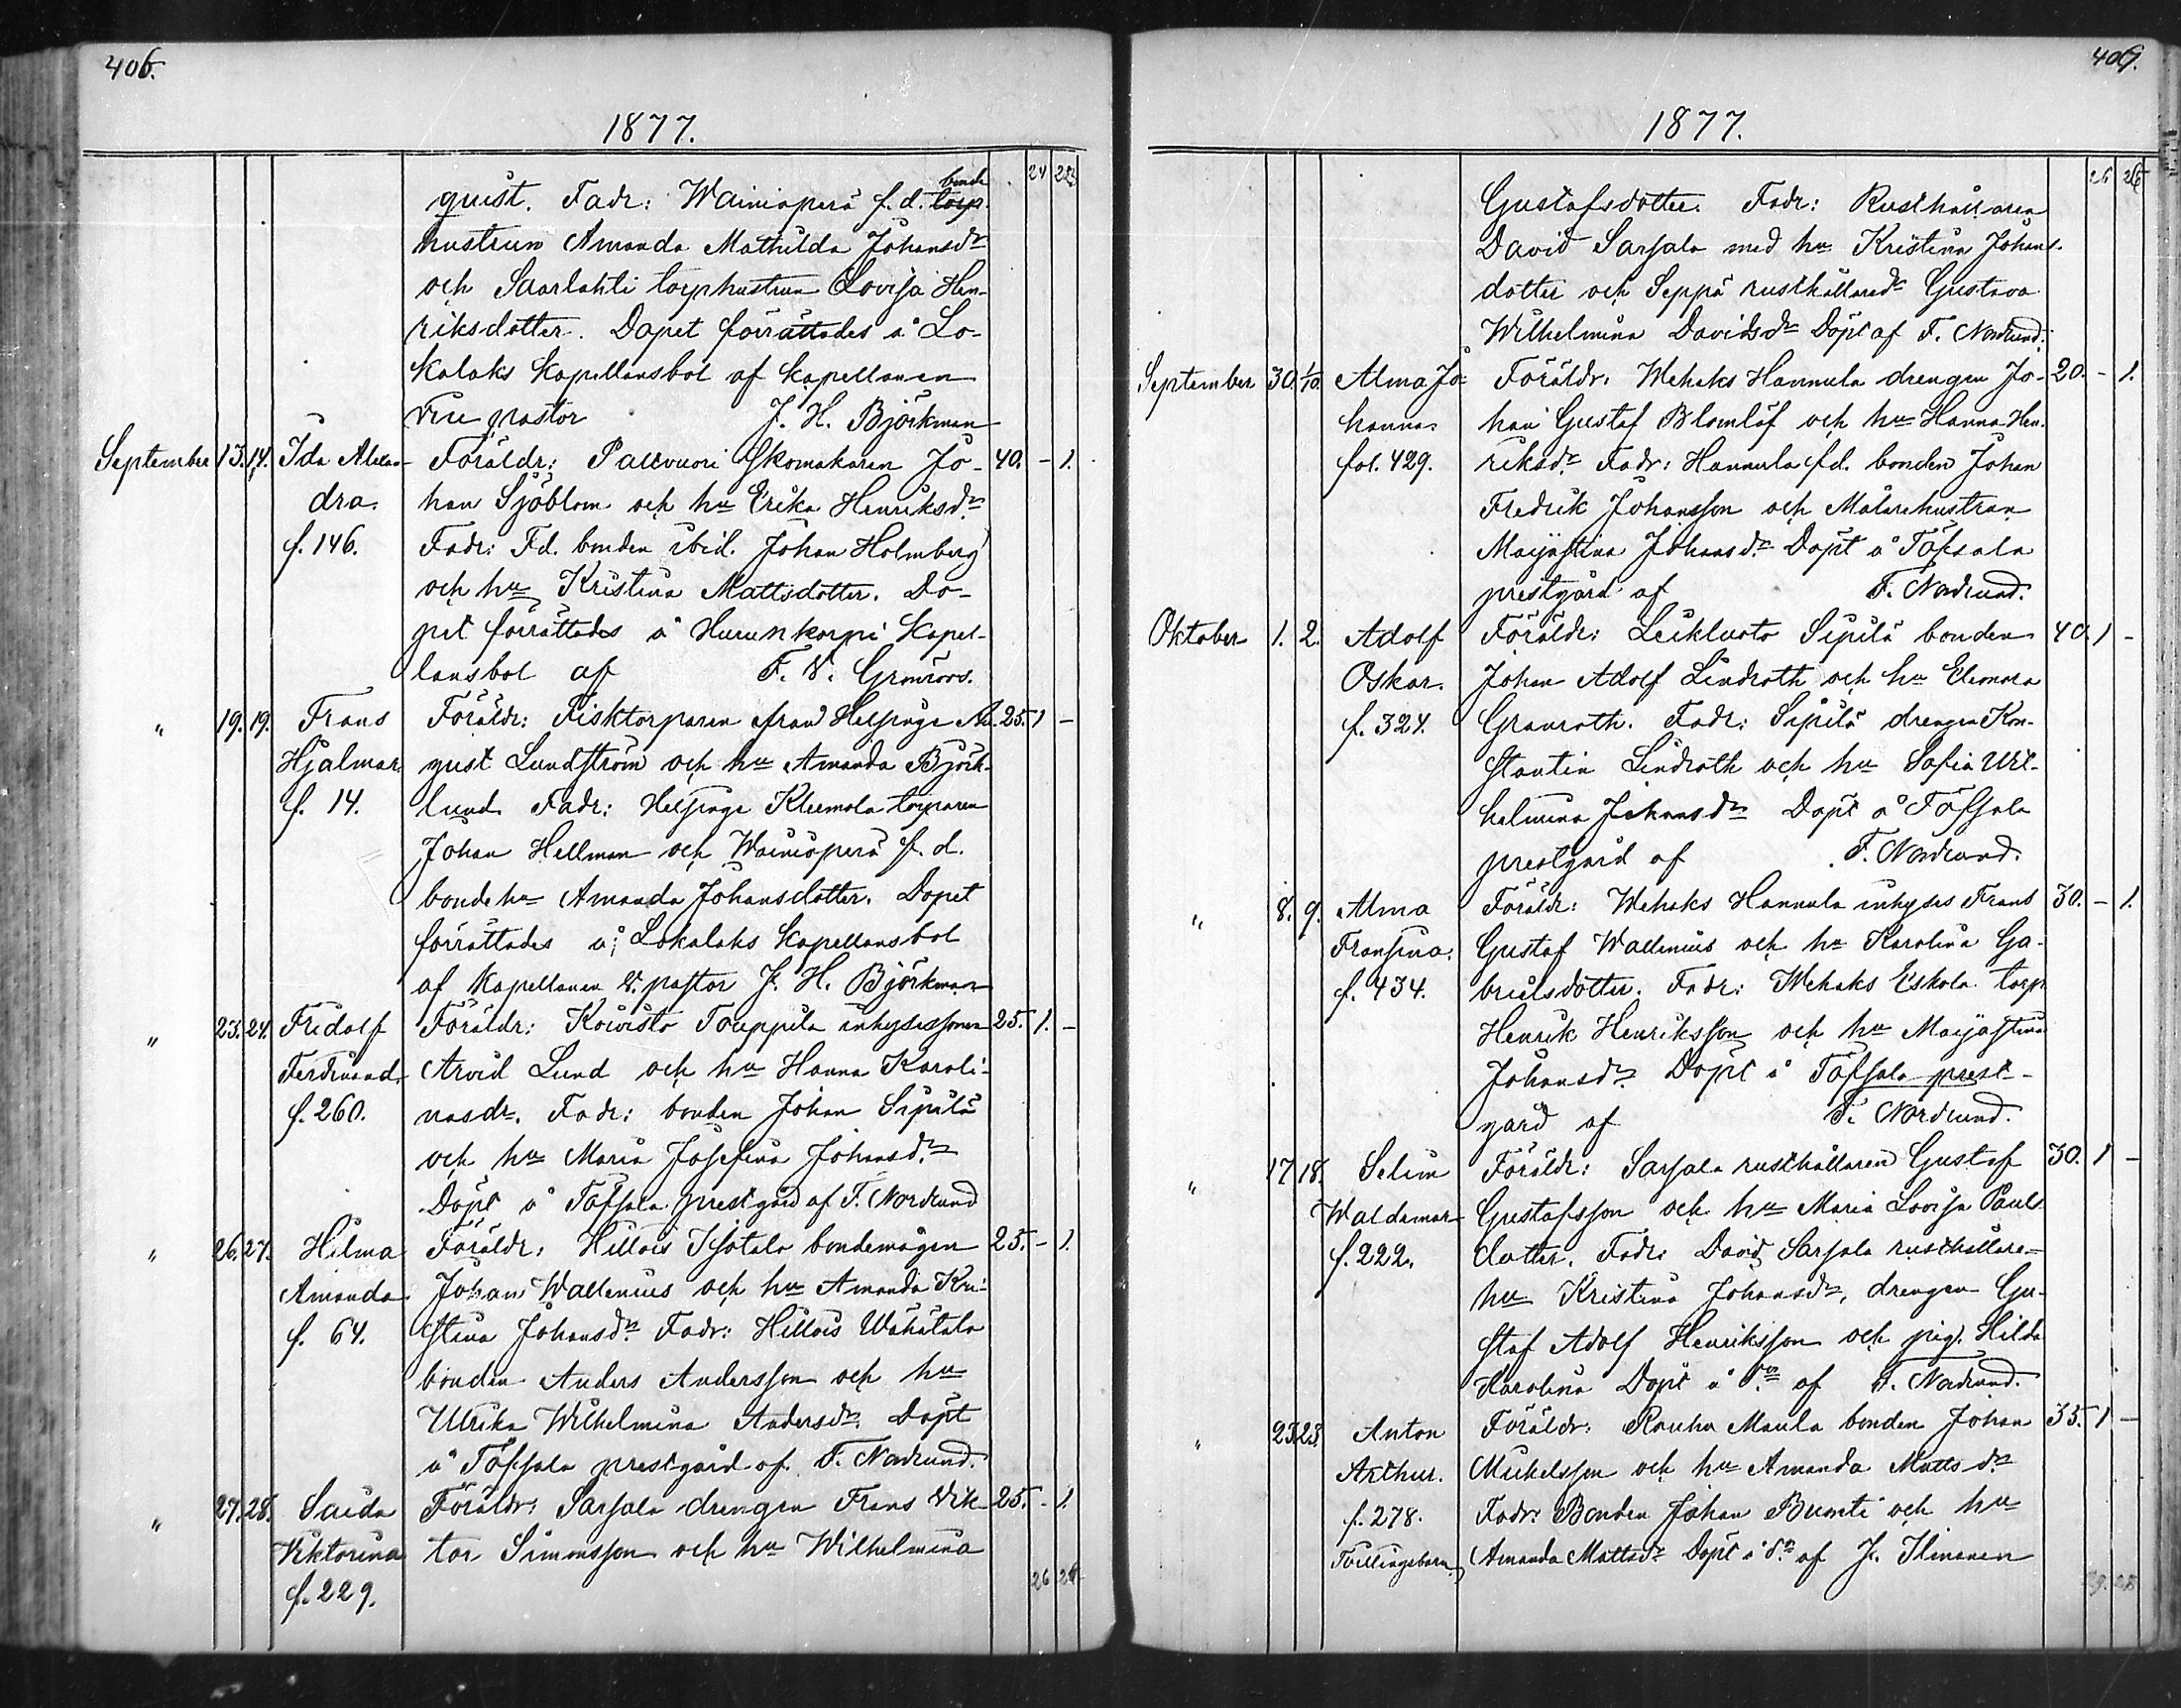 406.
1877.
24 23
bonde
quist. Fadr: Wainiopera f. d. torp.
hustrun Amanda Mathilda Johansdr
och Saarlahti torphustrun Lovisa Hen-
riksdotter. Dopet förrättades å Lo-
kalaks Kapellansbol af kapellanen
vice pastor J. H. Björkman
September 13. 14. Ida Alexan- Föräldr: Palkvuori Skomakaren Jo- 40. - 1.
dra. han Sjöblom och hu Erika Henriksdr
f. 146. Fadr: Fd. bonden ibid. Johan Holmberg
och hu Kristina Mattsdotter. Do-
pet förrättades å Hurunkorpi Kapel-
lansbol af F. V. Grönroos.
" 19. 19. Frans Föräldr: Fisktorparen från Helsinge Au- 25. 1 -
Hjalmar gust Lundström och hu Amanda Björk-
f. 14. lund. Fadr: Helsinge Kleemola torparen
Johan Hellman och Wainiopera f. d.
bondehu Amanda Johansdotter. Dopet
förrättades å Lokalaks Kapellansbol
af Kapellanen v. pastor J. H. Björkman
" 23. 24. Fridolf Föräldr: Koivisto Touppila inhysessonen 25. 1. -
Ferdinand. Arvid Lund och hu Hanna Karoli-
f. 260. nasdr. Fadr: bonden Johan Sipilä
och hu Maria Josefina Johansdr
Döpt å Töfsala prestgård af F. Nordlund
" 26. 27. Hilma Föräldr: Hillois Isotalo bondemågen 25. - 1.
Amanda Johan Wallenius och hu Amanda Kri-
f. 64. stina Johansdr Fadr: Hillois Wähätalo
bonden Anders Andersson och hu
Ulrika Wilhelmina Andersdr. Döpt
å Töfsala prestgård af F. Nordlund.
" 27. 28. Saida Föräldr: Sarsala drengen Frans Vik- 25. - 1.
Viktorina tor Simonsson och hu Wilhelmina
f. 229.
26 24
407.
1877.
26
Gustafsdotter. Fadr: Rusthållaren
David Sarsala med hu Kristina Johans-
dotter och Seppä rusthållaredr Gustava
Wilhelmina Davidsdr Döpt af F. Nordlund.
September 30. 1/10. Alma Jo- Föräldr: Wehaks Hannula drengen Jo- 20. - 1.
hanna. han Gustaf Blomlöf och hu Hanna Hen-
fol. 429. riksdr. Fadr: Hannula fd. bonden Johan
Fredrik Johansson och Målarehustrun
Maijastina Johansdr Döpt å Töfsala
prestgård af F. Nordlund.
Oktober 1. 2. Adolf Föräldr: Leikluoto Sipilä bonden 40. 1 -
Oskar. Johan Adolf Lindroth och hu Eleonora
f. 324. Granroth. Fadr: Sipilä drengen Kon-
stantin Lindroth och hu Sofia Wil-
helmina Johansdr Döpt å Töfsala
prestgård af F. Nordlund.
" 8. 9. Alma Föräldr: Wehaks Hannula inhyses Frans 30. - 1.
Fransina. Gustaf Wallenius och hu Karolina Ga-
f. 434. brielsdotter. Fadr: Wehaks Eskola torp.
Henrik Henriksson och hu Maijastina
Johansdr Döpt å Töfsala prest-
gård af F. Nordlund.
" 17 18. Selim Föräldr: Sarsala rusthållaren Gustaf 30. 1 -
Waldemar Gustafsson och hu Maria Lovisa Pauls-
f. 222. dotter. Fadr: David Sarsala rusthållare-
hu Kristina Johansdr, drengen Gu-
staf Adolf Henriksson och pig. Hilda
Karolina Döpt å do af F. Nordlund.
" 23 23. Anton Föräldr: Rauhu Maula bonden Johan 35. 1 -
Arthur. Mickelsson och hu Amanda Mattsdr
f. 278. Fadr: Bonden Johan Buomti och hu
Tvillingsbarn Amanda Mattsdr Döpt å do af J. Ilmonen
29. 28